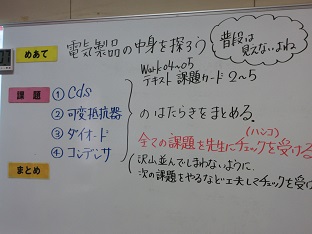 めあて 電気製品の中身を探ろう
普段は
見えないよね
Work04~05
テキスト 課題カード 2~5
課題 ① Cds
② 可変抵抗器
③ ダイオード
④ コンデンサ
のはたらきをまとめる.
(ハンコ)
全ての課題を先生にチェックを受ける
沢山並んでしまわないように
次の課題をやるなど工夫してチェックを受け
まとめ